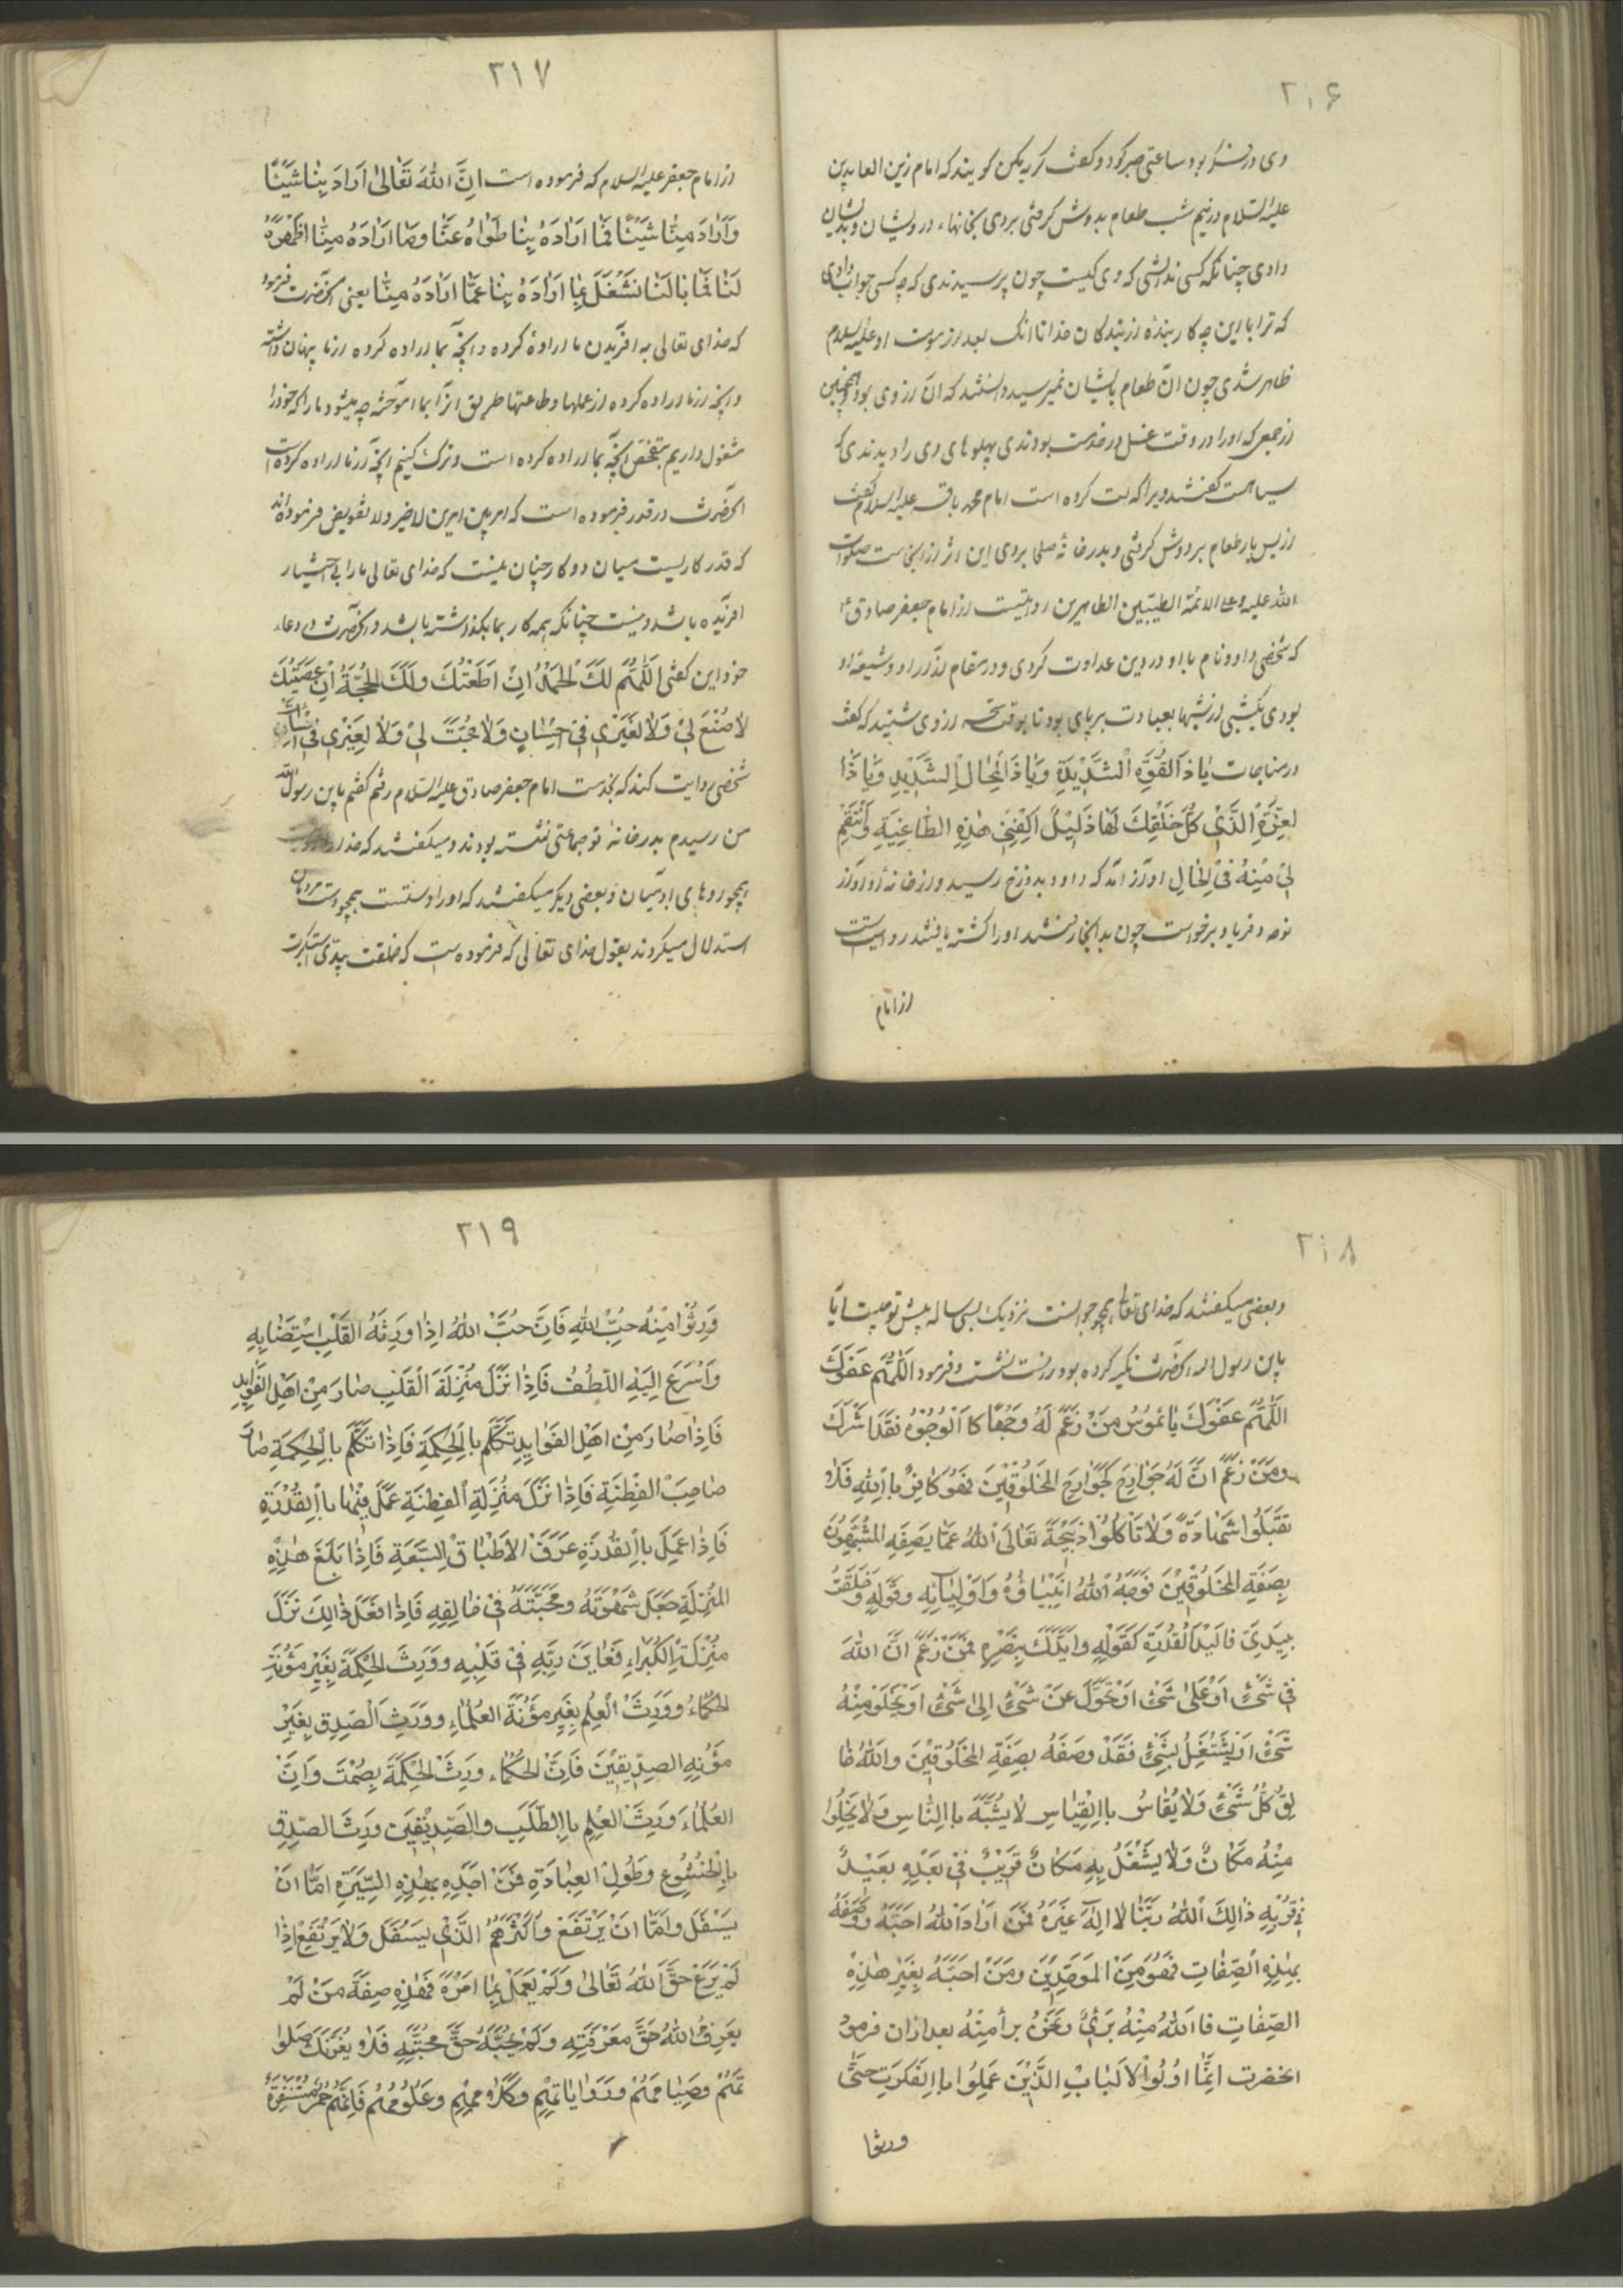 ۲۱۶
وی در بود ساعتی صبر کرد و گفت که گویند که امام زین العابدین
علیه السلام در نیم شب طعام بدوش گرفتی بردی بخانهاء درویشان و بدیشان
دادی چنانکه کسی ندانستی که وی کیست چون پرسیدندی که چه کسی جواب دادی
که ترا با این چه کار بندۀ از بندگان خدا تا آنک بعد از موت او علیه السلام
ظاهر شدی چون آن طعام بایشان نمیرسید دانستند که آن از وی بود و همچنین
از جمعی که او را در وقت غسل در خدمت بودندی پهلوهای وی را دیدندی که
سیاهست گفتند ویرا که لت کرده است امام محمد باقر علیه السلام گفت
از بس بار طعام بر دوش گرفتی و بدر خانه صلحا بردی این اثر از آنجاست صلوات
الله علیه و علی الائمة الطیبین الطاهرین روایتست از امام جعفر صادق ع
که شخصی داود نام با او در دین عداوت کردی و در مقام آزار او و شیعه او
بودی یکشبی از شبها بعبادت بر پای بود تا بوقت سحر از وی شنیدند که گفت
در مناجات یا ذا القوة الشدیدة و یا ذا المحال الشدید و یا ذا
لعزة الذی کل خلقک لها ذلیل اکفنی هذه الطاغیة و انتقم
لی منه فی الحال آواز آمد که داود بدوزخ رسید و از خانه او آواز
نوحه و فریاد برخواست چون بدانجا رفتند او را کشته یافتند روایتست
از امام
۲۱۷
از امام جعفر علیه السلام که فرموده است ان الله تعالی اراد بنا شیئا
و اراد منا شیئا فما اراده بنا طواه عنا و ما اراده منا اظهره
لنا فما بالنا نشغل بما اراده بنا عما اراده منا یعنی آنحضرت فرمود
که خدای تعالی به آفریدن ما ارادۀ کرده و آنچه بما اراده کرده از ما پنهان داشته
و آنچه از ما اراده کرده از عملها و طاعتها طریق آنرا بما آموخته چه میشود ما را که خود را
مشغول داریم بتفحص آنچه بما اراده کرده است و ترک کنیم آنچه از ما اراده کرده است
آنحضرت در قدر فرموده است که امر بین امرین لا جبر ولا تفویض فرموده اند
که قدر کاریست میان دو کار چنان نیست که خدای تعالی ما را بی اختیار
آفریده باشد و نیست چنانکه همه کار بما بگذاشته باشد و آنحضرت در دعاء
خود این گفتی اللهم لک الحمد ان اطعتک ولک الحجة ان عصیتک
لا صنع لی ولا لغیری فی احسان ولا حجة لی ولا لغیری فی اساءت
شخصی روایت کند که بخدمت امام جعفر صادق علیه السلام رفتم گفتم یابن رسول الله
من رسیدم بدر خانۀ تو جماعتی نشسته بودند و میگفتند که خدا را
همچو روهای آدمیان و بعضی دیگر میگفتند که او را دستست همچو دست مردمان
استدلال میکردند بقول خدای تعالی که فرموده است که خلقت بیدی استکبرت
۲۱۸
و بعضی میگفتند که خدای تعالی همچو جوانست نزدیک بسی ساله پیش تو چیست اینا
یابن رسول الله آنحضرت تکیه کرده بود راست نشست و فرمود اللهم عفوک
اللهم عفوک یا من زعم له وجها کا الوجوه فقد اشرک
ومن زعم ان له جوارح کجوارح المخلوقین فهو کافر باالله فلا
تقبلوا شهادة ولا تاکلوا ذبیحة تعالی الله عما یصفه المشبهون
بصفة المخلوقین فوجه الله انبیاؤه واولیائه وقوله خلقت
بیدی فالید القدرة کقوله وایدک بنصره فمن زعم ان الله
فی شیئ او علی شیئ او تحول عن شیئ الی شیئ او یخلو منه
شیئ او یشتغل بشیئ فقد وصفه بصفة المخلوقین والله خا
لق کل شیئ ولا یقاس باالقیاس لا یشبه باالناس ولا یخلوا
منه مکان ولا یشغل به مکان قریب فی بعده بعید
فی قربه ذالک الله ربنا لا اله غیره فمن اراد الله احبه وصفه
بهذه الصفات فهو من الموحدین ومن احبه بغیر هذه
الصفات فاالله منه بری ونحن برأ منه بعد از ان فرمود
آنحضرت انما اولوا الالباب الذین عملوا باالفکرت حتی
ورثوا
۲۱۹
ورثوا منه حب الله فان حب الله اذا ورثه القلب استضا به
واسرع الیه اللطف فاذا نزل منزلة القلب صار من اهل الفواید
فاذا صار من اهل الفواید تکلم باالحکمة فاذا تکلم باالحکمة صار
صاحب الفطنة فاذا نزل منزلة الفطنة عمل فیها باالقدرة
فاذا عمل باالقدرة عرف الاطباق السبعة فاذا بلغ هذه
المنزلة جعل شهوته ومحبته فی خالقه فاذا فعل ذالک نزل
منزلة الکبراء فعاین ربه فی قلبه وورث الحکمة بغیر مؤنة
الحکماء وورث العلم بغیر مؤنة العلماء وورث الصدق بغیر
مؤنه الصدیقین فان الحکماء ورث الحکمة بصمت وان
العلماء ورث العلم باالطلب والصدیقین ورث الصدق
باالخشوع وطول العبادة فمن اخذه بهذه السیرة اما ان
یسفل واما ان یرتفع واکثرهم الذی یسفل ولا یرتفع اذا
لم یرع حق الله تعالی ولم یعمل بما امره فهذه صفة من لم
یعرف الله حق معرفته ولم یحبه حق محبته فلا یغرنک صلوا
تهم وصیامهم وروایاتهم وکلامهم وعلومهم فانهم حمر مستنفرة